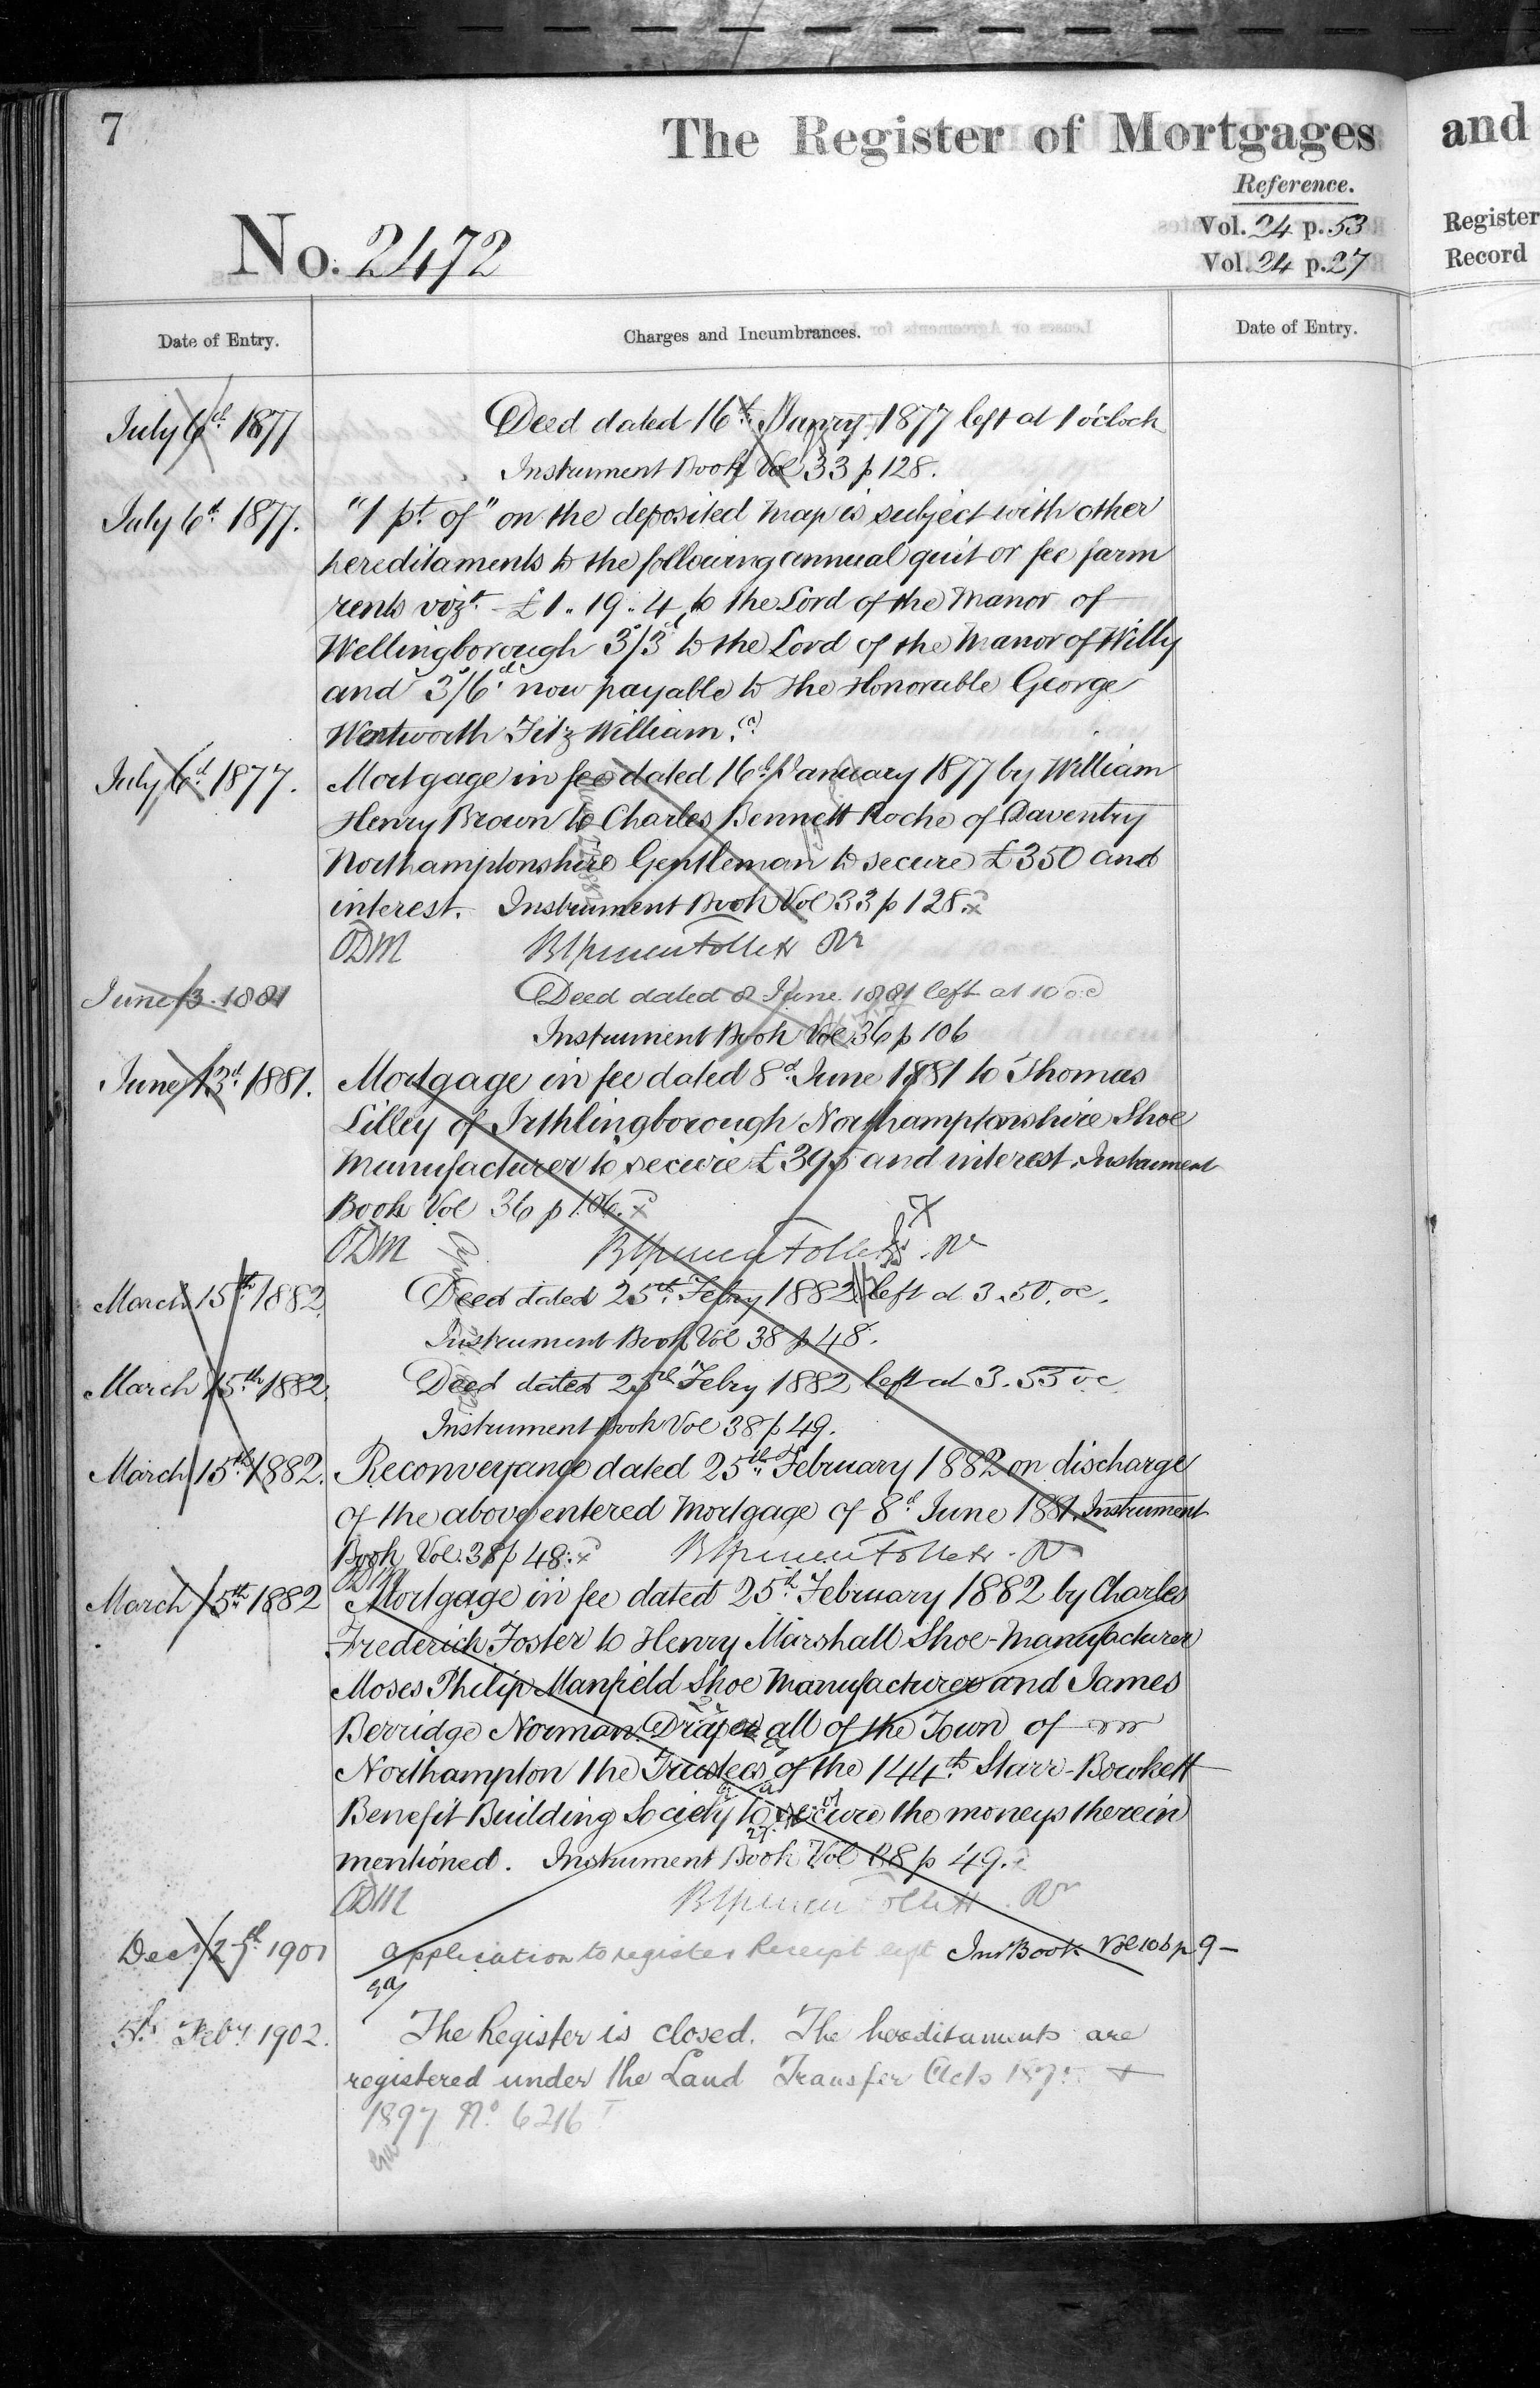 7
The Register of Mortgages
and
Reference.
Vol. 24 p. 53
Register
Vol. 24 p. 27
Record
No. 2472
Date of Entry.
Charges and Incumbrances.
Date of Entry.
July 6th 1877
Deed dated 16th Janry 1877 left at 1 o'clock
Instrument Book Vol 33 p 128.
July 6th 1877. "1 pt. of" on the deposited Map is subject with other
hereditaments to the following annual quit or fee farm
rents vizt. £1.. 19.. 4 to the Lord of the Manor of
Wellingborough 3s/3d to the Lord of the Manor of Willy
and 3s/6d now payable to the Honorable George
Wentworth Fitz William.
July 6th 1877. Mortgage in fee dated 16th January 1877 by William
Henry Brown to Charles Bennett Roche of Daventry
Northamptonshire Gentleman to secure £350 and
interest. Instrument Book Vol 33 p 128.
ODM
June 13. 1881
Deed dated 8 June 1881 left at 10 oc
Instrument Book Vol 36 p 106
June 13th 1881. Mortgage in fee dated 8th June 1881 to Thomas
Lilley of Irthlingborough Northamptonshire Shoe
Manufacturer to secure £395 and interest. Instrument
Book Vol 36 p 106.
ODM
March 15th 1882. Deed dated 25th Febry 1882 left at 3.50. oc.
Instrument Book Vol 38 p 48.
March 15th 1882. Deed dated 25th Febry 1882 left at 3.55 oc
Instrument Book Vol 38 p 49.
March 15th 1882. Reconveyance dated 25th February 1882 on discharge
of the above entered Mortgage of 8th June 1881. Instrument
Book Vol. 38 p 48.
ODM
March 15th 1882 Mortgage in fee dated 25th February 1882 by Charles
Frederick Foster to Henry Marshall Shoe-Manufacturer
Moses Philip Manfield Shoe Manufacturer and James
Berridge Norman Draper all of the Town of
Northampton the Trustees of the 144th Starr-Bowkett
Benefit Building Society to secure the moneys therein
mentioned. Instrument Book Vol 38 p 49.
ODM
Decr 27th 1901 application to register Receipt left Ins Book Vol 106 p 9 -
5th Feby 1902. The Register is closed. The hereditaments are
registered under the Land Transfer Acts 1875 +
1897 No. 6216